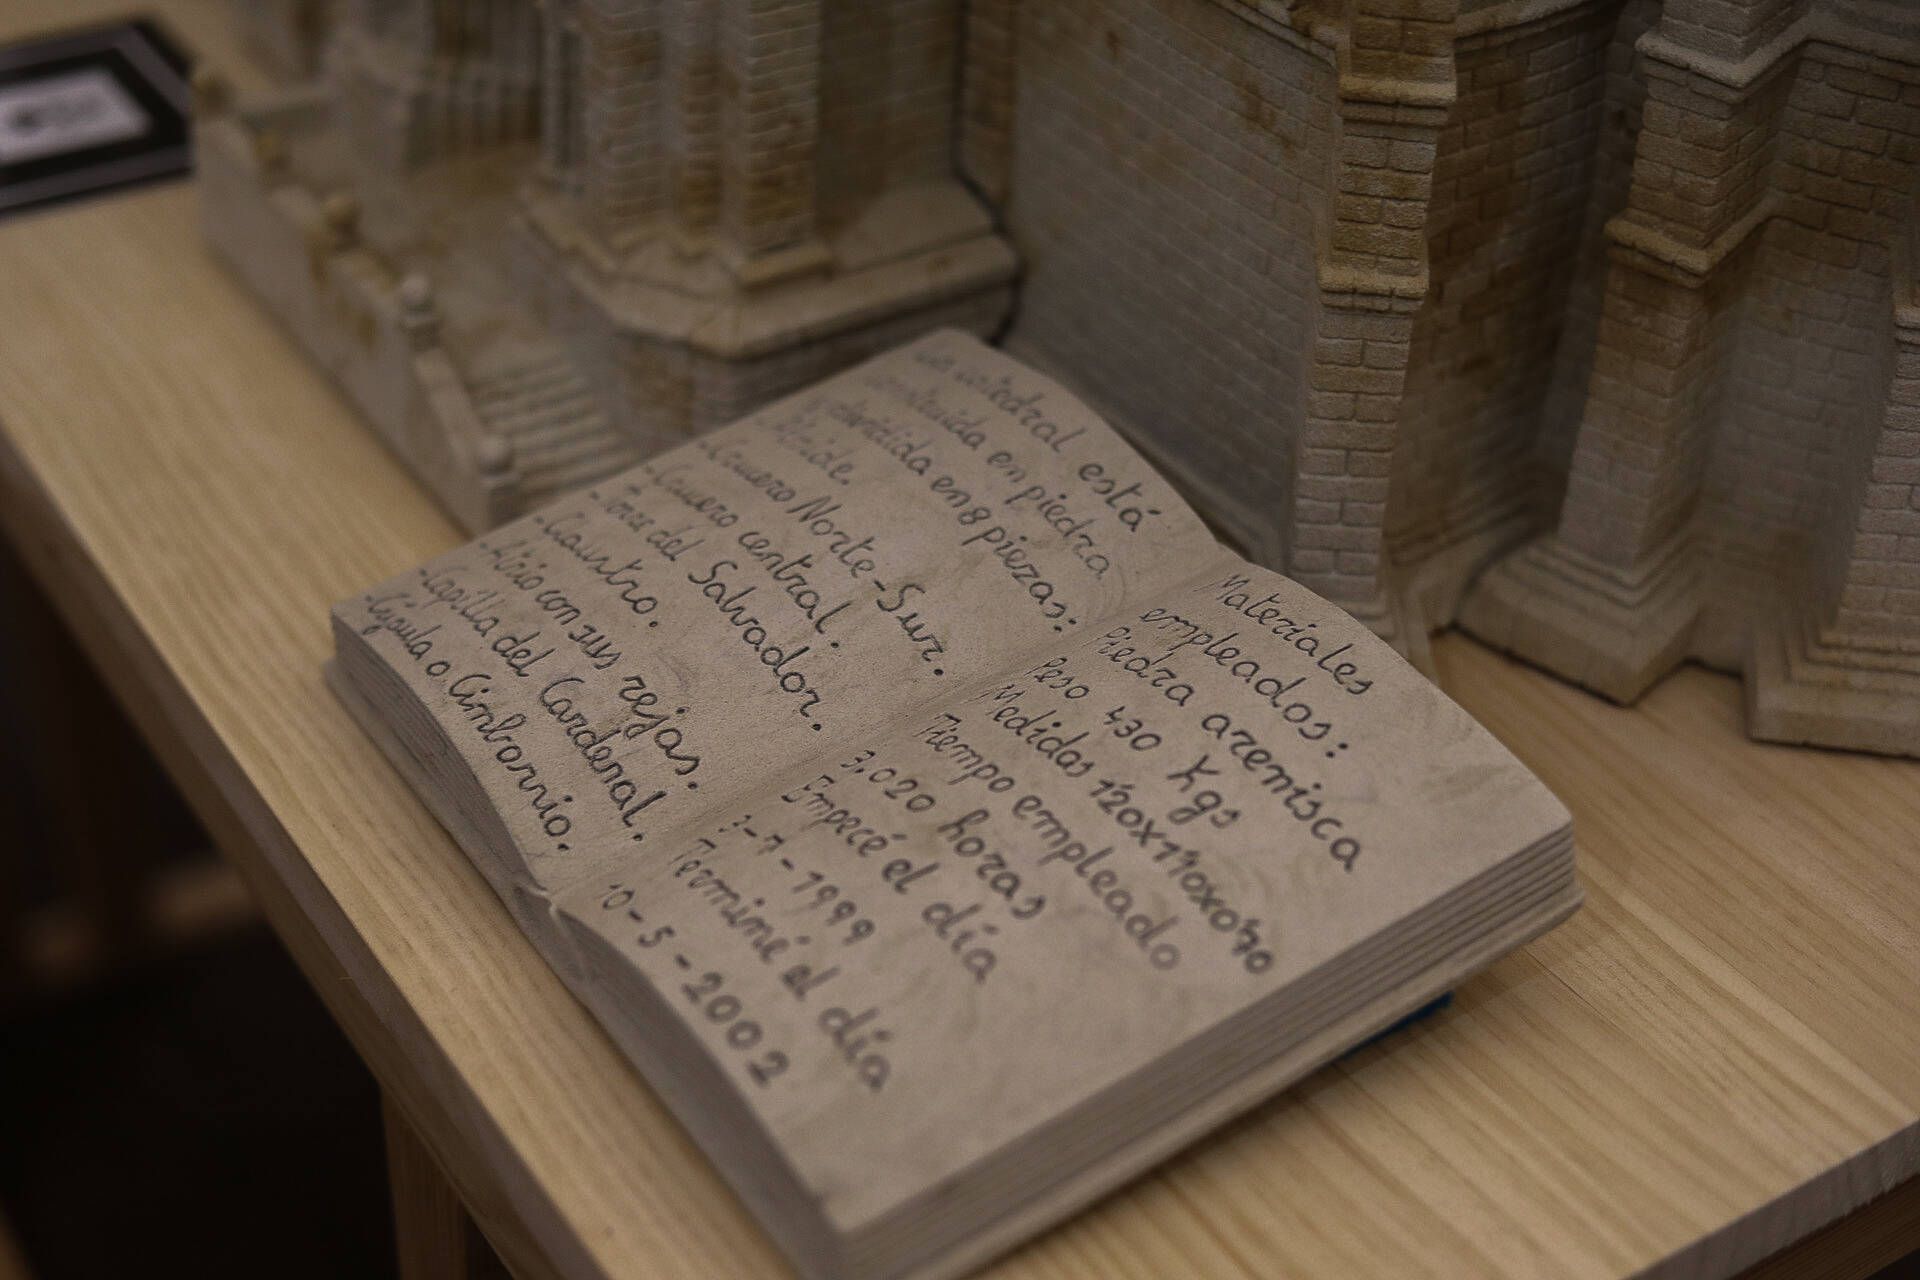 La catedral está
construida en piedra
y dividida en 8 piezas:
-Ábside.
-Crucero Norte-Sur.
-Crucero central.
-Torre del Salvador.
-Claustro.
-Atrio con sus rejas.
-Capilla del Cardenal.
-Gígula o Cimborrio.
Materiales
empleados:
Piedra arenisca
Peso 430 Kgs
Medidas 120x110x070
Tiempo empleado
3.020 horas
Empecé el día
1-7-1999
Terminé el día
10-5-2002